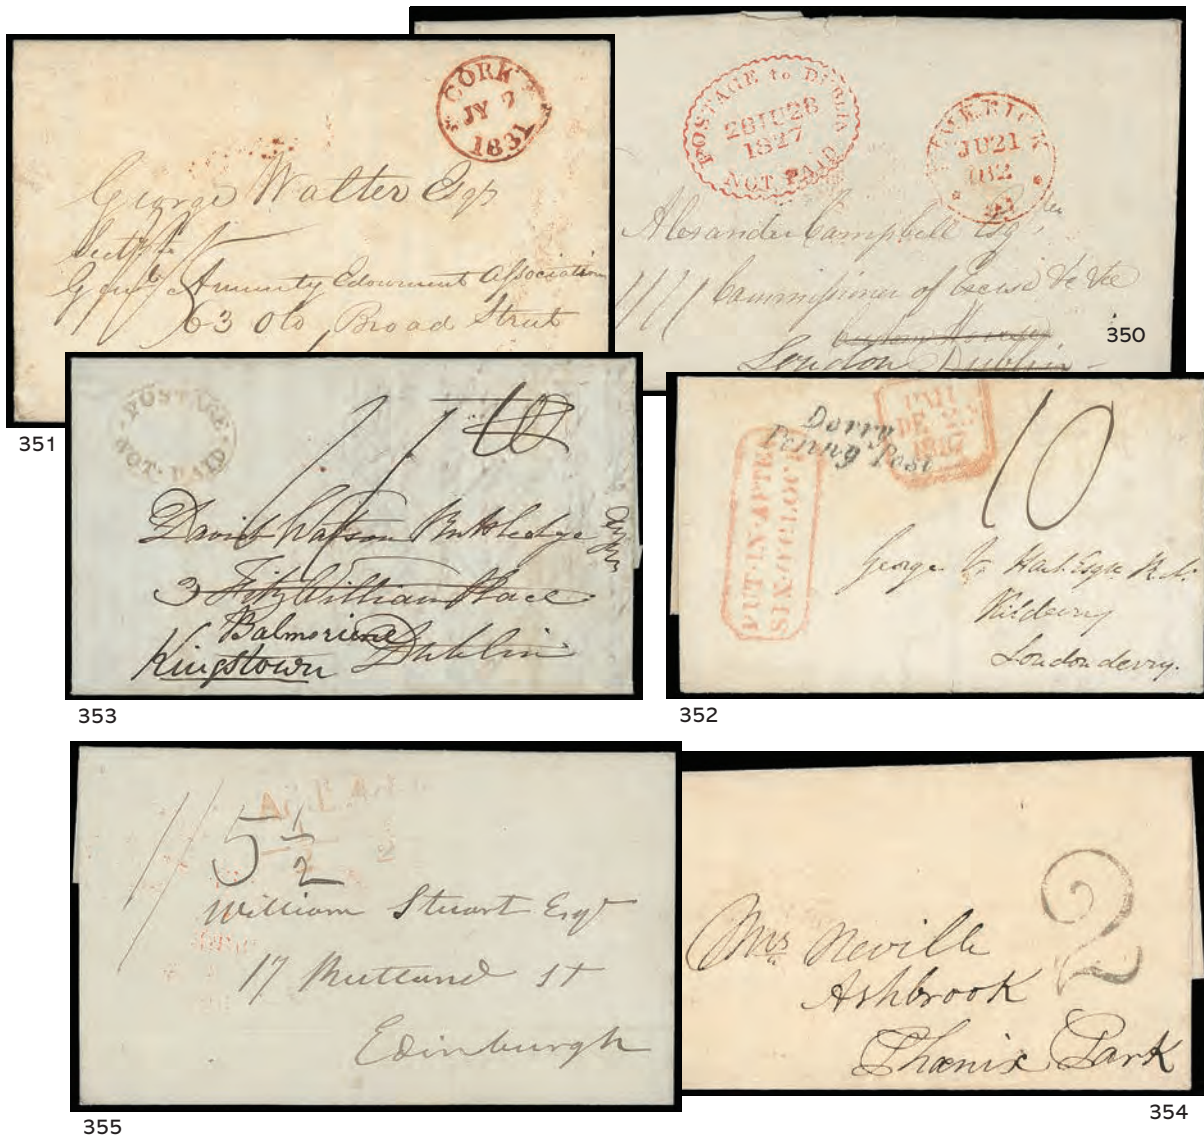 CORK
JY 2
1831
George Walter Esqr
Annuity Edowment Association
63 Old Broad Street
351
POSTAGE to DUBLIN
28 JU 28
1827
NOT PAID
LIMERICK
JU21
Alexander Campbell Esq
Commissioner of Excise
Custom House
London Dublin
350
POSTAGE
NOT PAID
David Watson Rutledge
3 Fitz William Place
Balmoriene
Kingstown Dublin
353
Derry
Penny Post
PUT-IN-AFTER
SIX-O'CLOCK
10
George V Hart Esqr R.N.
Kilderry
Londonderry.
352
5 1/2
William Stuart Esqr
17 Rutland St
Edinburgh
355
2
Mrs Neville
Ashbrook
Phœnix Park
354